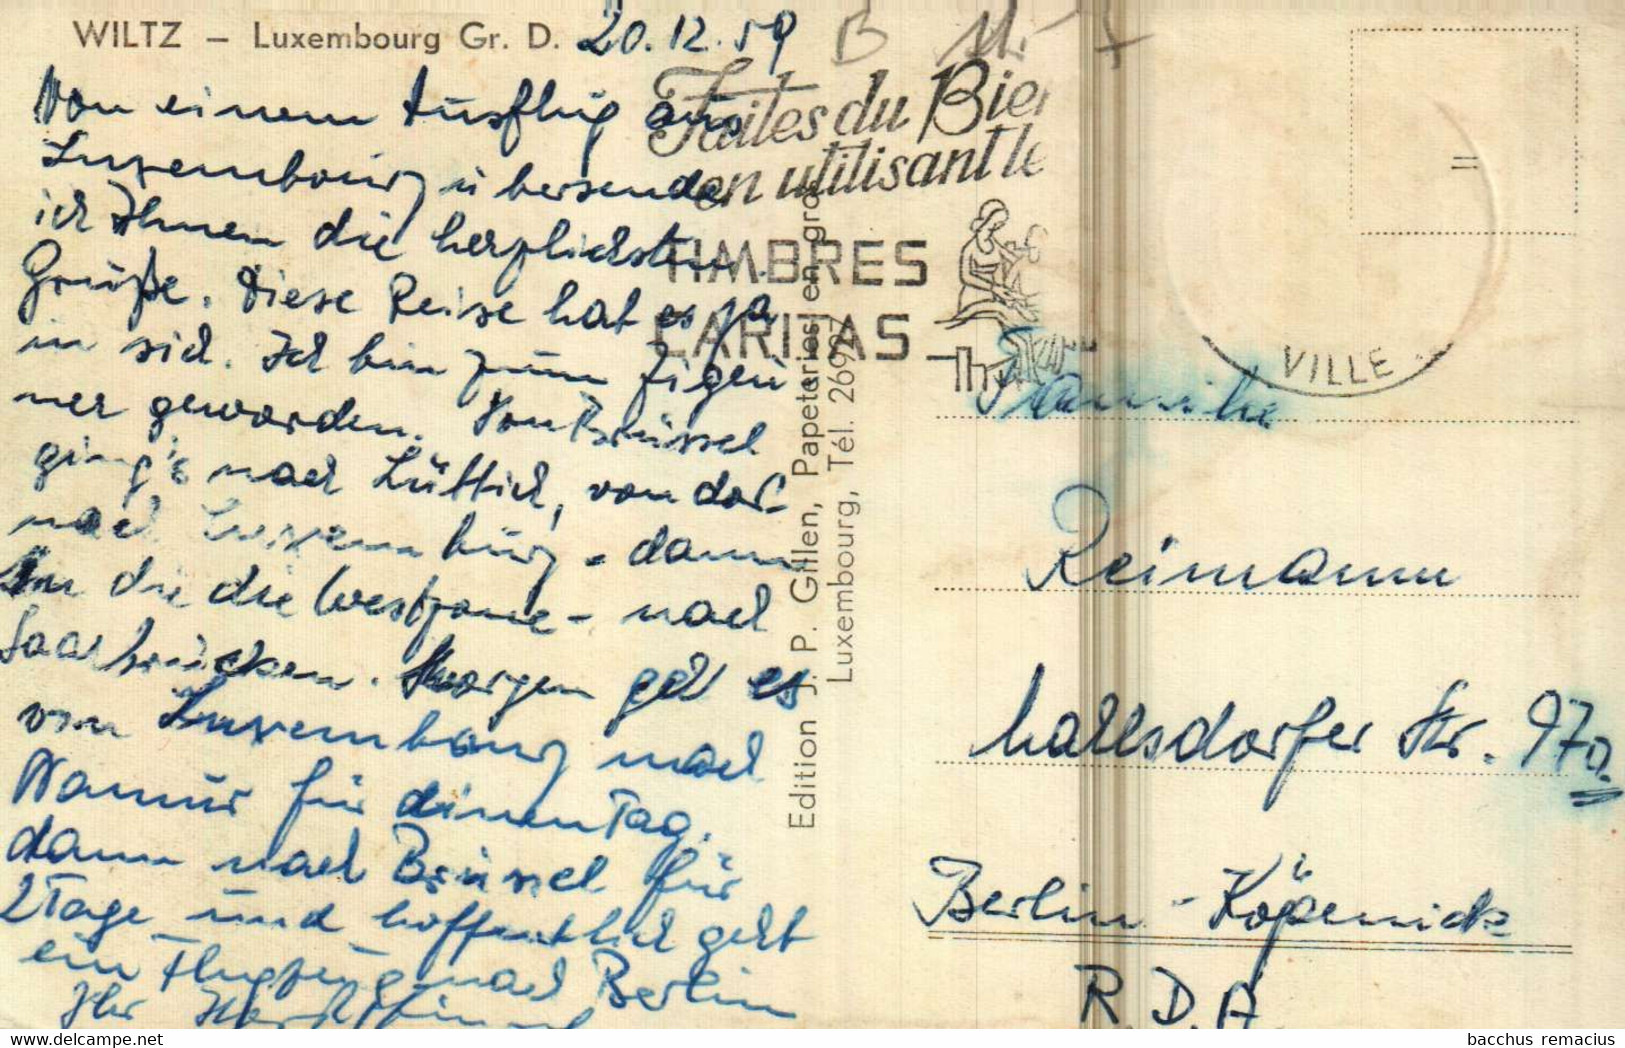 WILTZ – Luxembourg Gr. D. 20.12.59
B
Von einem Ausflug aus
Luxembourg übersende
ich Ihnen die herzlichsten
Grüße. Diese Reise hat es ja
in sich. Ich bin zum Zigeu
ner geworden. Von Brüssel
ging's nach Lüttich, von dort
nach Luxemburg - dann
in die die Westzone - nach
Saarbrücken. Morgen geht es
von Luxembourg nach
Namur für einen Tag.
dann nach Brüssel für
2 Tage und hoffentlich geht
ein Flugzeug nach Berlin
Ihr
Faites du Bien
en utilisant le
TIMBRES
CARITAS
VILLE
Edition J. P. Gillen, Papeteries en gros
Luxembourg, Tél. 26997
Familie
Reimann
Mahlsdorfer Str. 97a
Berlin - Köpenick
R. D. A.
bacchus remacius